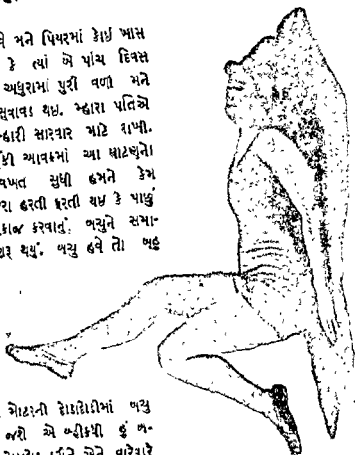 વે મને પિયરમાં કોઈ ખાસ
કે ત્યાં બે પાંચ દિવસ
અધુરામાં પુરી વળી મને
સુવાવડ થઇ. મ્હારા પતિએ
મ્હારી સારવાર માટે રાખી.
ટુંકી આવકમાં આ ઘાટણનો
વખત સુધી હમને કેમ
રા હરતી ફરતી થઇ કે પાછું
કાજ કરવાનું. બચુને સમા-
રૂ થયું. બચુ હવે તો બહુ
મોટરની દોડાદોડીમાં બચુ
જશે એ બ્હીકથી હું બ-
એને વારેવારે